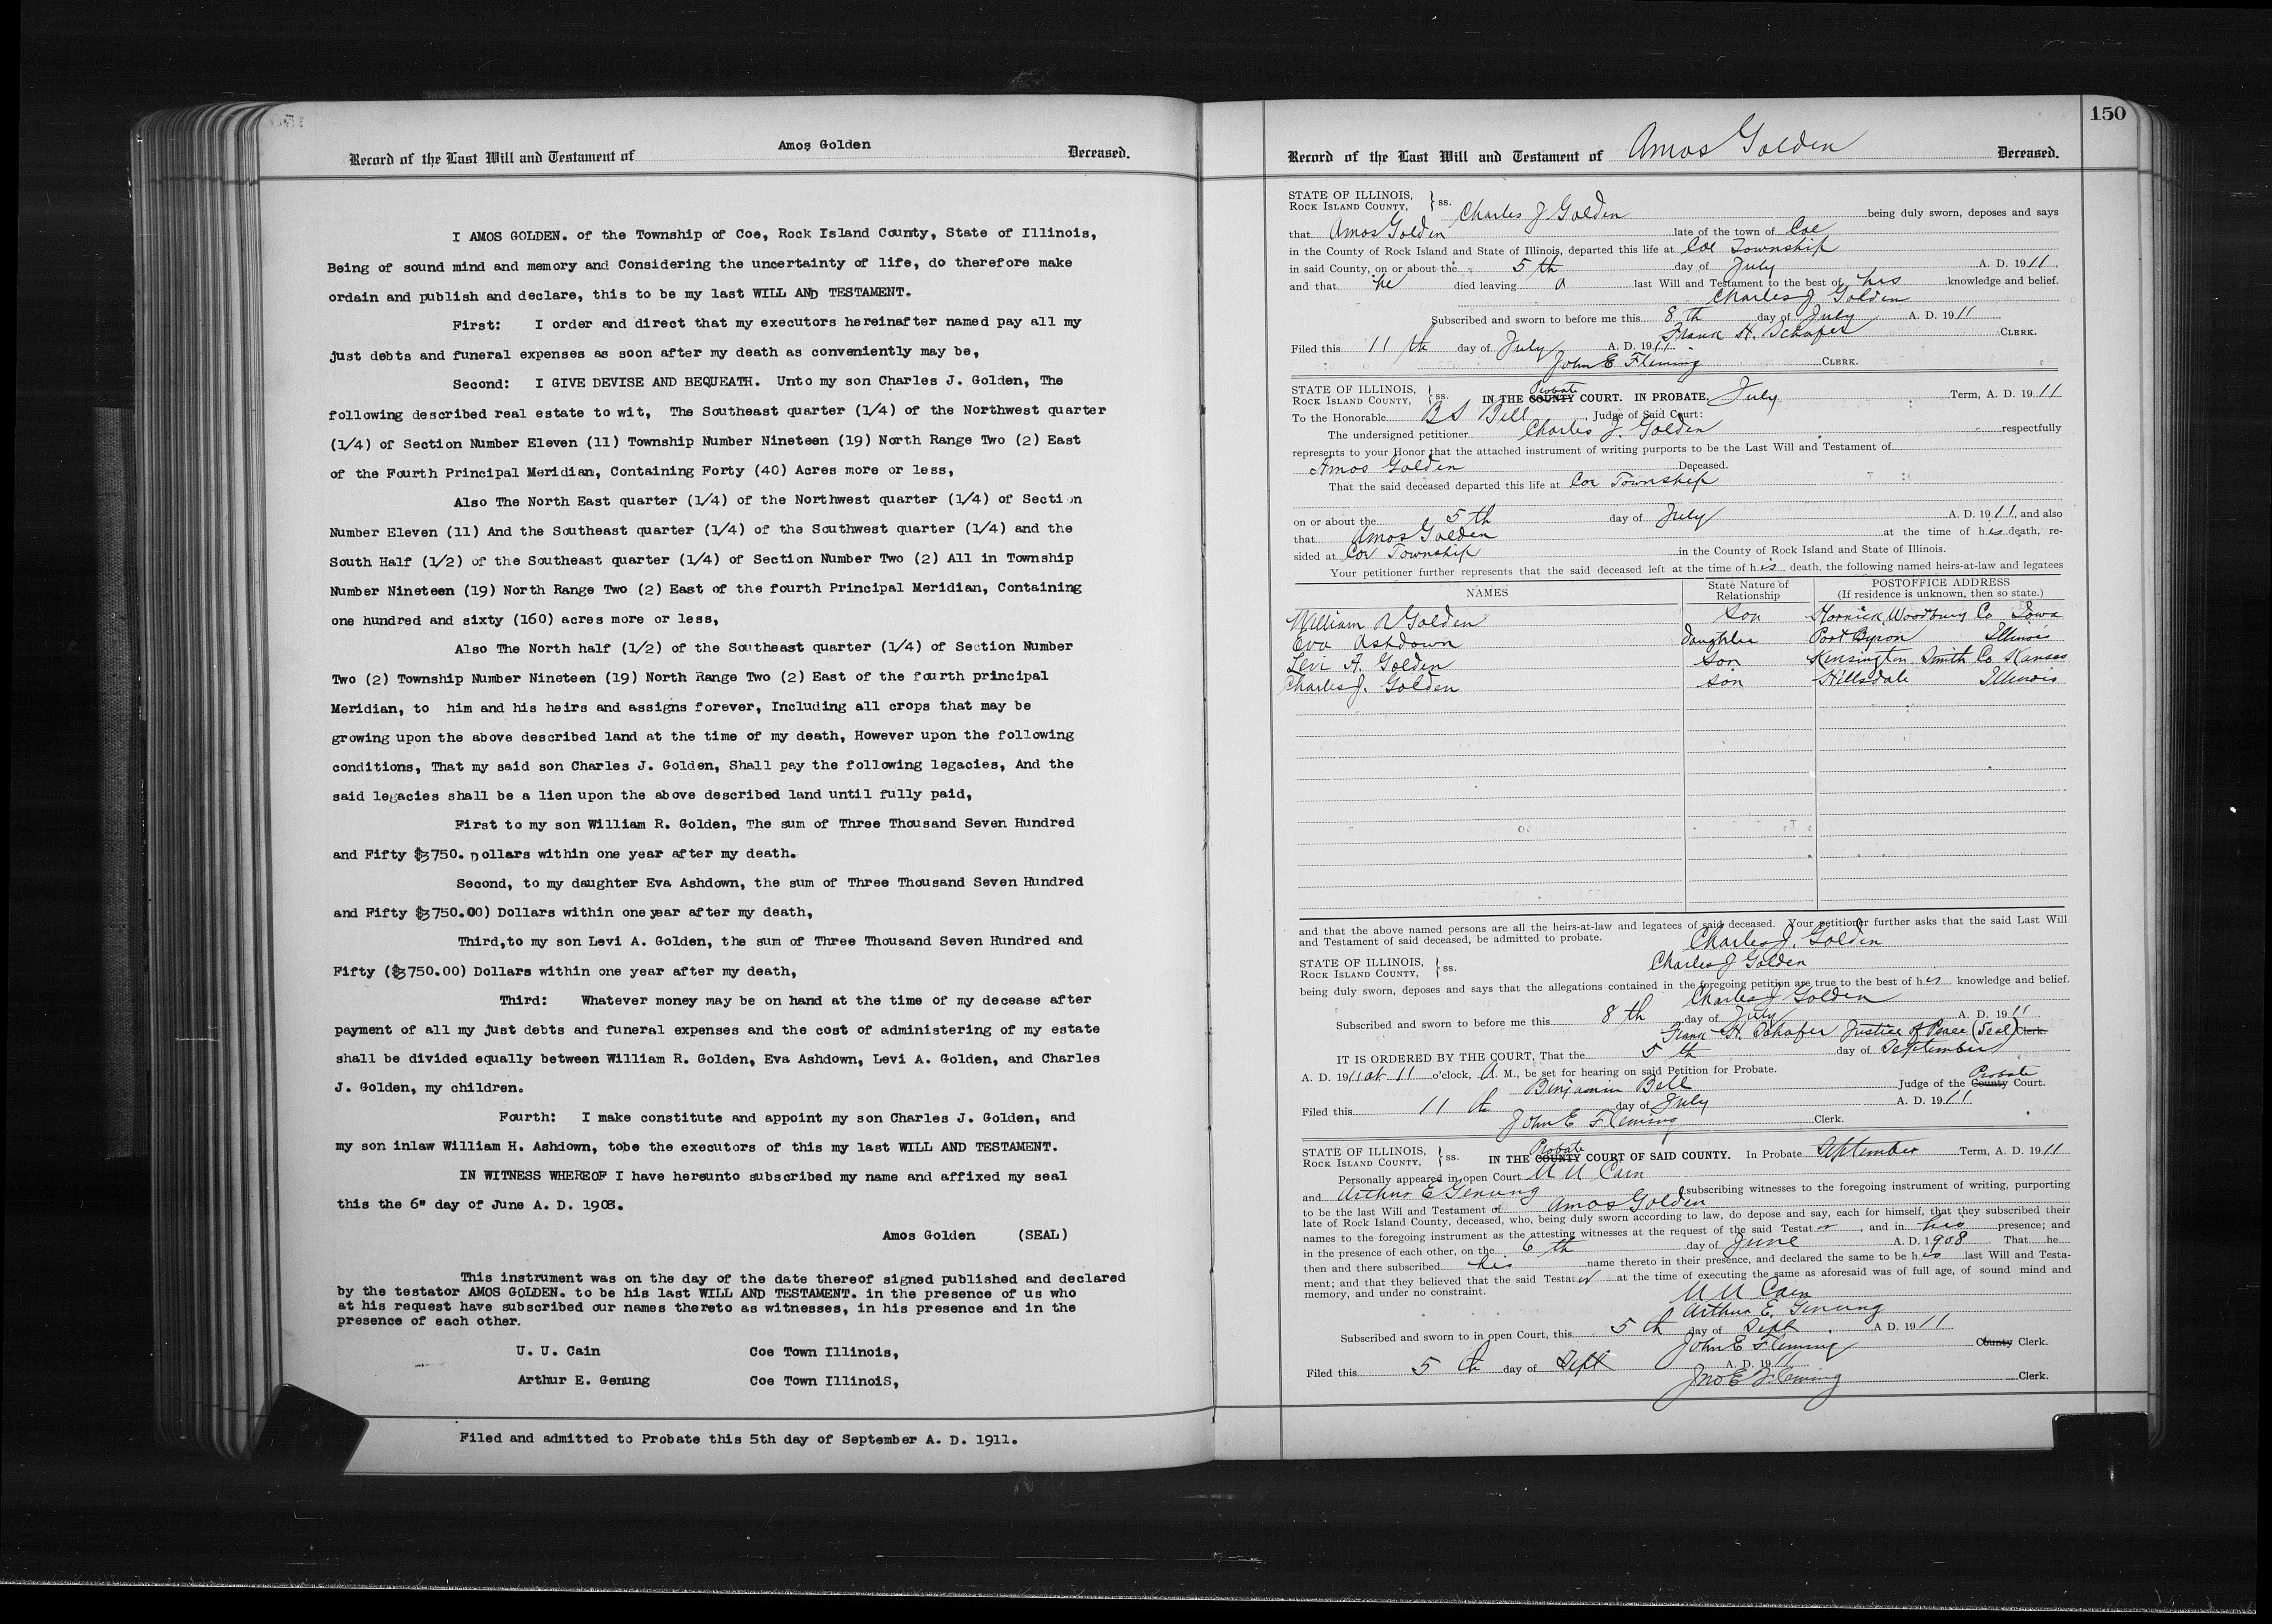 Amos Golden
Record of the Last Will and Testament of Deceased.
I AMOS GOLDEN. of the Township of Coe, Rock Island County, State of Illinois,
Being of sound mind and memory and Considering the uncertainty of life, do therefore make
ordain and publish and declare, this to be my last WILL AND TESTAMENT.
First: I order and direct that my executors hereinafter named pay all my
just debts and funeral expenses as soon after my death as conveniently may be,
Second: I GIVE DEVISE AND BEQUEATH. Unto my son Charles J. Golden, The
following described real estate to wit, The Southeast quarter (1/4) of the Northwest quarter
(1/4) of Section Number Eleven (11) Township Number Nineteen (19) North Range Two (2) East
of the Fourth Principal Meridian, Containing Forty (40) Acres more or less,
Also The North East quarter (1/4) of the Northwest quarter (1/4) of Section
Number Eleven (11) And the Southeast quarter (1/4) of the Southwest quarter (1/4) and the
South Half (1/2) of the Southeast quarter (1/4) of Section Number Two (2) All in Township
Number Nineteen (19) North Range Two (2) East of the fourth Principal Meridian, Containing
one hundred and sixty (160) acres more or less,
Also The North half (1/2) of the Southeast quarter (1/4) of Section Number
Two (2) Township Number Nineteen (19) North Range Two (2) East of the fourth principal
Meridian, to him and his heirs and assigns forever, Including all crops that may be
growing upon the above described land at the time of my death, However upon the following
conditions, That my said son Charles J. Golden, Shall pay the following legacies, And the
said legacies shall be a lien upon the above described land until fully paid,
First to my son William R. Golden, The sum of Three Thousand Seven Hundred
and Fifty $3750. Dollars within one year after my death.
Second, to my daughter Eva Ashdown, the sum of Three Thousand Seven Hundred
and Fifty $3750.00) Dollars within one year after my death,
Third,to my son Levi A. Golden, the sum of Three Thousand Seven Hundred and
Fifty ($3750.00) Dollars within one year after my death,
Third: Whatever money may be on hand at the time of my decease after
payment of all my just debts and funeral expenses and the cost of administering of my estate
shall be divided equally between William R. Golden, Eva Ashdown, Levi A. Golden, and Charles
J. Golden, my children.
Fourth: I make constitute and appoint my son Charles J. Golden, and
my son inlaw William H. Ashdown, tobe the executors of this my last WILL AND TESTAMENT.
IN WITNESS WHEREOF I have hereunto subscribed my name and affixed my seal
this the 6" day of June A. D. 1908.
Amos Golden (SEAL)
This instrument was on the day of the date thereof signed published and declared
by the testator AMOS GOLDEN. to be his last WILL AND TESTAMENT. in the presence of us who
at his request have subscribed our names thereto as witnesses, in his presence and in the
presence of each other.
U. U. Cain Coe Town Illinois,
Arthur E. Genung Coe Town IllinoiS,
Filed and admitted to Probate this 5th day of September A. D. 1911.
150
Record of the Last Will and Testament of Amos Golden Deceased.
STATE OF ILLINOIS,
ROCK ISLAND COUNTY, } ss. Charles J Golden being duly sworn, deposes and says
that Amos Golden late of the town of Coe
in the County of Rock Island and State of Illinois, departed this life at Coe Township
in said County, on or about the 5 th day of July A. D. 1911,
and that he died leaving a last Will and Testament to the best of his knowledge and belief.
Charles J Golden
Subscribed and sworn to before me this 8 th day of July A. D. 1911
Frank H. Schafer CLERK.
Filed this 11 th day of July A. D. 1911.
John E Fleming CLERK.
STATE OF ILLINOIS,
ROCK ISLAND COUNTY, } ss. IN THE COUNTY Probate COURT. IN PROBATE, July Term, A. D. 1911
To the Honorable B S Bell, Judge of Said Court:
The undersigned petitioner Charles J. Golden respectfully
represents to your Honor that the attached instrument of writing purports to be the Last Will and Testament of
Amos Golden Deceased.
That the said deceased departed this life at Coe Township
on or about the 5 th day of July A. D. 1911, and also
that Amos Golden at the time of his death, re-
sided at Coe Township in the County of Rock Island and State of Illinois.
Your petitioner further represents that the said deceased left at the time of his death, the following named heirs-at-law and legatees
NAMES State Nature of Relationship POSTOFFICE ADDRESS (If residence is unknown, then so state.)
William R Golden Son Hornick, Woodbury Co Iowa
Eva Ashdown Daughter Port Byron Illinois
Levi A. Golden Son Kensington Smith Co Kansas
Charles J. Golden Son Hillsdale Illinois
and that the above named persons are all the heirs-at-law and legatees of said deceased. Your petitioner further asks that the said Last Will
and Testament of said deceased, be admitted to probate. Charles J. Golden
STATE OF ILLINOIS,
ROCK ISLAND COUNTY, } ss. Charles J Golden
being duly sworn, deposes and says that the allegations contained in the foregoing petition are true to the best of his knowledge and belief.
Charles J Golden
Subscribed and sworn to before me this 8 th day of July A. D. 1911
Frank H. Schafer Justice of Peace (Seal) Clerk.
IT IS ORDERED BY THE COURT, That the 5 th day of September
A. D. 1911 at 11 o'clock, A M., be set for hearing on said Petition for Probate.
Benjamin Bell Judge of the County Probate Court.
Filed this 11 th day of July A. D. 1911
John E Fleming Clerk.
STATE OF ILLINOIS,
ROCK ISLAND COUNTY, } ss. IN THE COUNTY Probate COURT OF SAID COUNTY. In Probate September Term, A. D. 1911
Personally appeared in open Court U U Cain
and Arthur E Genung subscribing witnesses to the foregoing instrument of writing, purporting
to be the last Will and Testament of Amos Golden
late of Rock Island County, deceased, who, being duly sworn according to law, do depose and say, each for himself, that they subscribed their
names to the foregoing instrument as the attesting witnesses at the request of the said Testator, and in his presence; and
in the presence of each other, on the 6 th day of June A. D. 1908 That he
then and there subscribed his name thereto in their presence, and declared the same to be his last Will and Testa-
ment; and that they believed that the said Testator at the time of executing the same as aforesaid was of full age, of sound mind and
memory, and under no constraint.
U U Cain
Arthur E. Genung
Subscribed and sworn to in open Court, this 5 th day of Sept A D. 1911
John E Fleming County Clerk.
Filed this 5 th day of Sept A. D. 1911
Jno E Fleming Clerk.